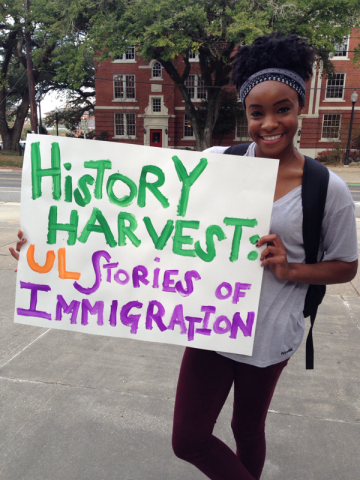 HISTORY
HARVEST:
UL STORIES OF
IMMIGRATION